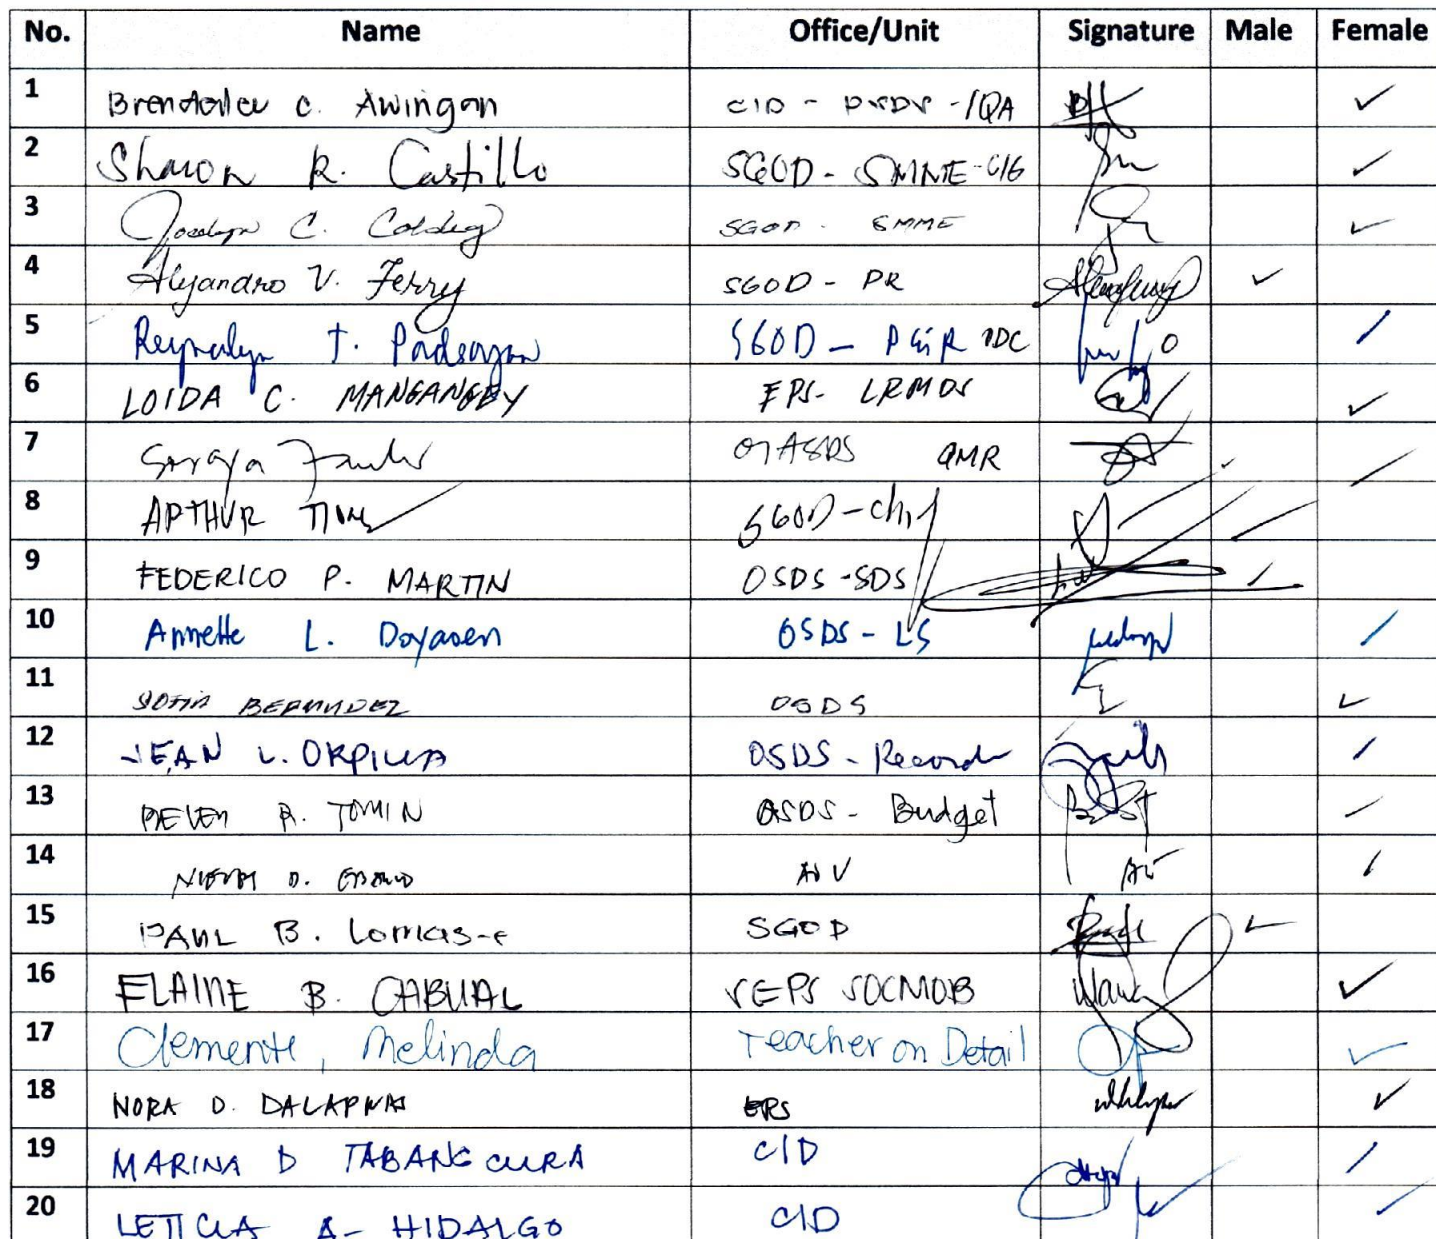 No. Name Office/Unit Signature Male Female
1 C. Awingan CID - PSDS - IQA ✓
2 Sharon R. Castillo SGOD - SMME - ✓
3 Jocelyn C. SGOD - SMME ✓
4 Alejandro V. Ferry SGOD - PR ✓
5 Reynalyn T. Padsoyan SGOD - P&R
6 LOIDA C. MANGANGEY EPS - LRMDS ✓
7 Soraya QMR
8 ARTHUR SGOD - Chief
9 FEDERICO P. MARTIN OSDS - SDS
10 Annette L. Doyaoen OSDS - LS
11 SOFIA BERMUDEZ OSDS ✓
12 JEAN L. ORPILLA OSDS - Records
13 R. TOMIN OSDS - Budget
14 D.
15 PAUL B. SGOD ✓
16 ELAINE B. CABUAL SEPS SOCMOB ✓
17 Clemente, Melinda Teacher on Detail ✓
18 NORA D. DALAPNAS EPS ✓
19 MARINA D TABANGCURA CID
20 LETICIA A- HIDALGO CID